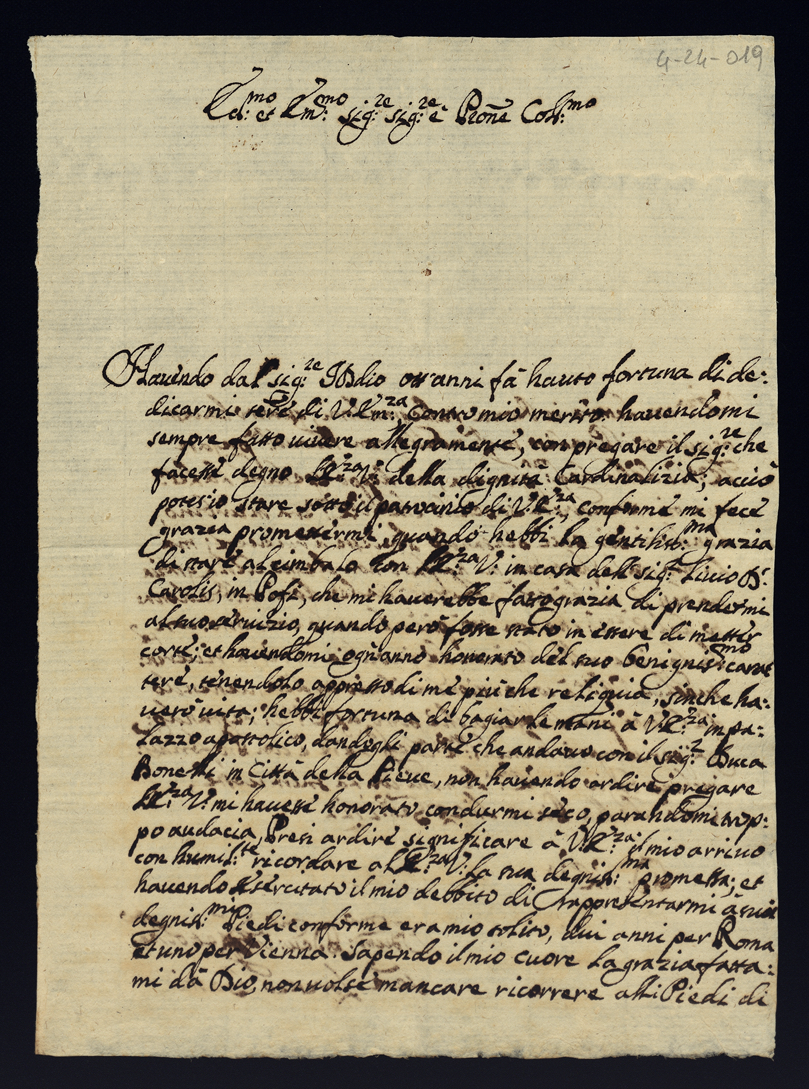 4-24-019
Ecl:mo et Emo: sig:re sig:re e Prone Coll:mo
Havendo dal sig:re Iddio ott'anni fà hauto fortuna di de:
dicarmi ser.e di V.Em:za Contro mio merito havendomi
sempre fatto vivere allegramente, con pregare il sig:re che
facesse degno l'E:za V: della dignità Cardinalizia; acciò
potess'io stare sotto il patrocinio di V.E:za, conforme mi fece
grazia promettermi, quando hebbi la gentiliss:ma grazia
di stare al cimbalo con l'E:za V: in casa dell sig: Livio D:
Carolis, in Pofi, che mi haverebbe fatto grazia di prendermi
al suo servizio, quando però fosse stato in essere di metter
corte; et havendomi ogn'anno honorato del suo benigniss:mo carat
tere, tenendolo appresso di me più che reliquia, sinche ha:
verò vita; hebbi fortuna di bagiar le mani à V.E:za in pa:
lazzo apostolico, dandogli parte che andavo con il sig:r Duca
Bonelli in Città della Pieve, non havendo ardire pregare
l'E:za V: mi havesse honorato condurmi seco, parandomi trop:
po audacia, Presi ardire significare à V.E:za il mio arrivo
con humil:te ricordare al'E:za V. la sua degniss:ma promessa; et
havendo esercitato il mio debbito di rappresentarmi à suoi
degniss:mi Piedi conforme era mio solito, dui anni per Roma
et uno per Vienna. Sapendo il mio cuore la grazia fatta:
mi dà Dio, non volse mancare ricorrere alli Piedi di